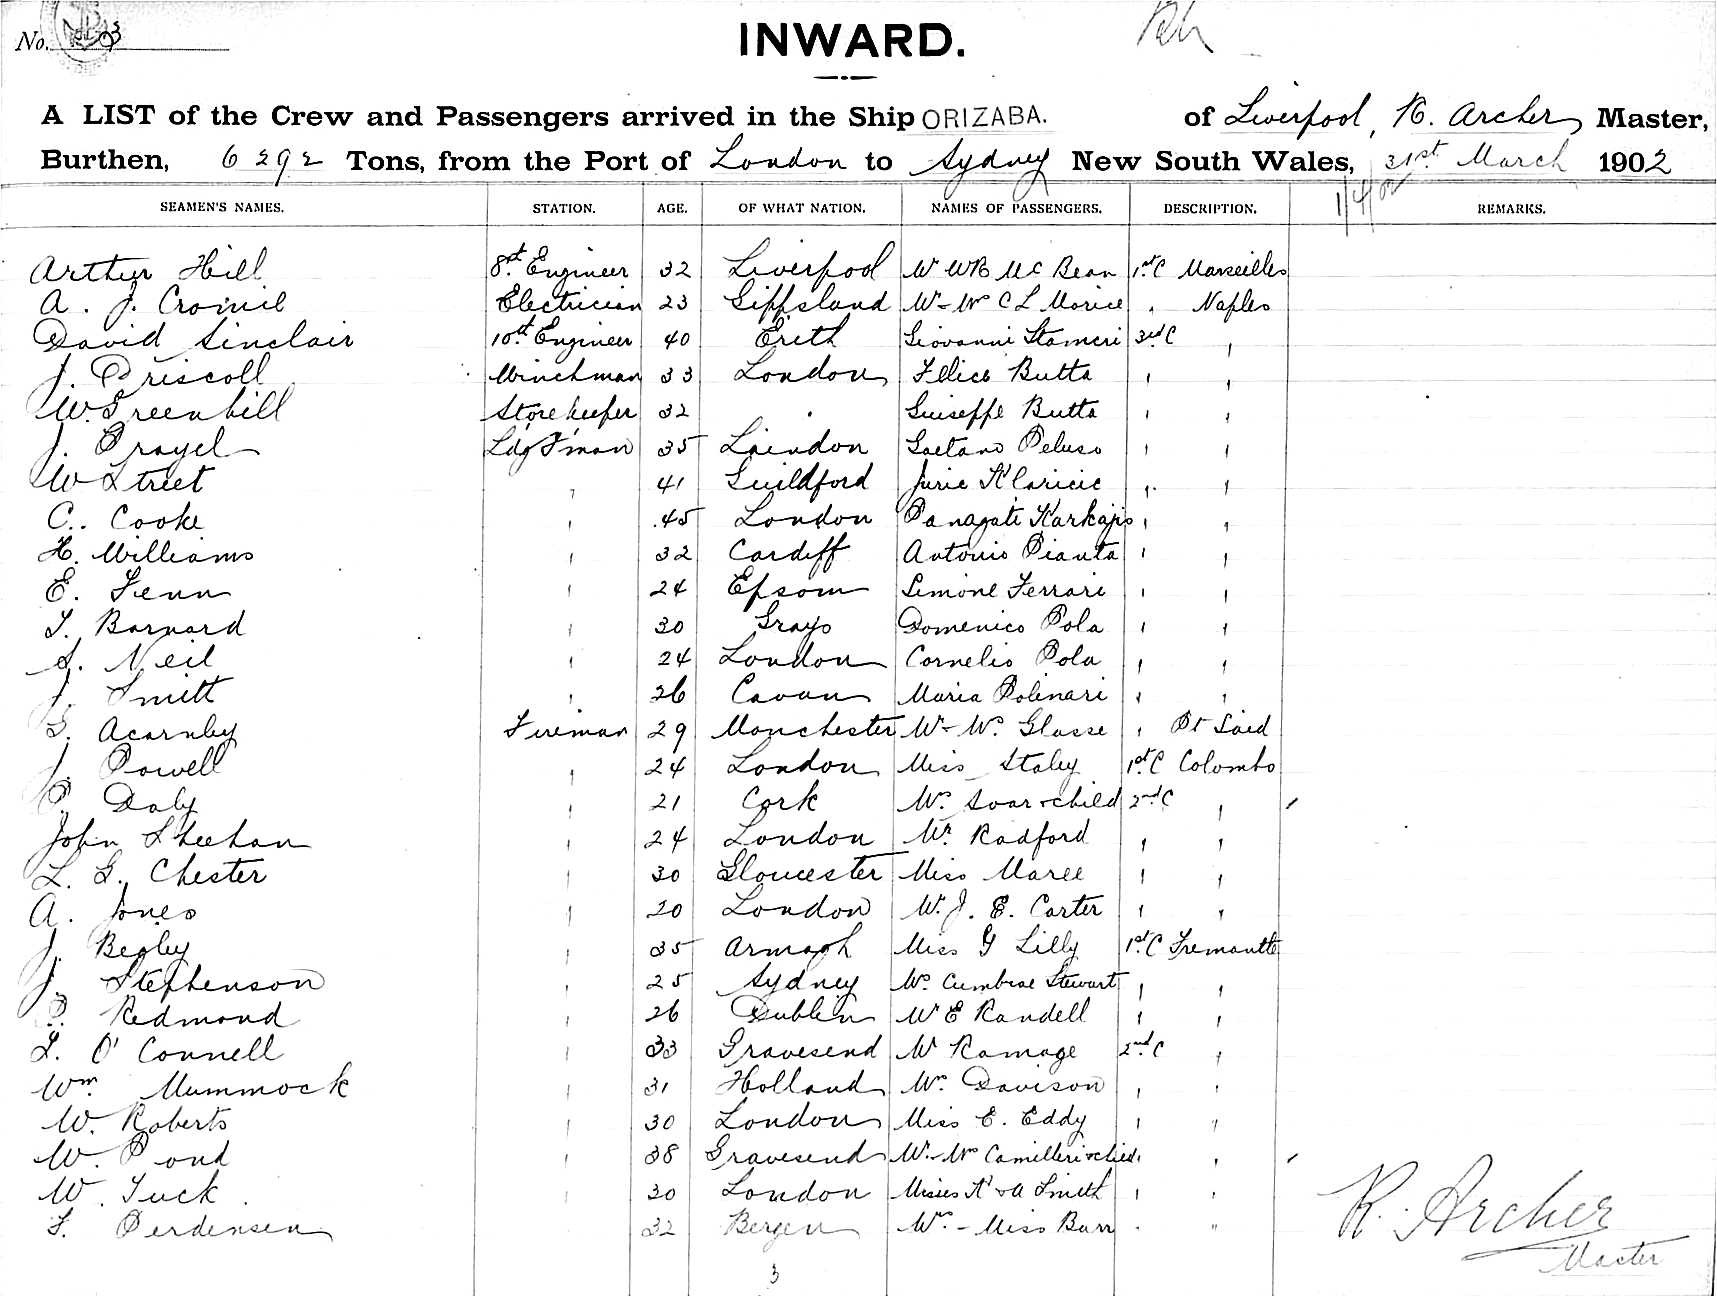 No.
INWARD.
A LIST of the Crew and Passengers arrived in the Ship ORIZABA. of Liverpool, R. Archer, Master,
Burthen, 6292 Tons, from the Port of London to Sydney New South Wales, 31st March 1902
1/4/02
SEAMEN'S NAMES. STATION. AGE. OF WHAT NATION. NAMES OF PASSENGERS. DESCRIPTION. REMARKS.
Arthur Hill 8th Engineer 32 Liverpool Mr WR McBean 1st C Marseilles
A. J. Electrician 23 Gippsland Mr - Mrs C L Morice " Naples
David Sinclair 10th Engineer 40 Erith Giovanni 3rd C "
J. Driscoll Winchman 33 London Felice Butta " "
W. Greenhill Storekeeper 32 " Guiseppe Butta " "
J. Ldg F'man 35 Gaetano Peluso " "
W Street " 41 Guildford Jurie Klaricic " "
C. Cooke " 45 London " "
H. Williams " 32 Cardiff Antonio Pianta " "
E. Fenn " 24 Epsom Simone Ferrari " "
T. Barnard " 30 Grays Domenico Pola " "
S. Neil " 24 London Cornelio Pola " "
J. Smith " 26 Cavan Maria Polinari " "
Fireman 29 Manchester Mr - Mrs Glasse " Pt Said
J. Powell " 24 London Miss Staley 1st C Colombo
P. Daly " 21 Cork Mrs Soar & child 2nd C "
John Sheehan " 24 London Mr Radford " "
L. G. Chester " 30 Gloucester Miss Maree " "
A. Jones " 20 London Mr J. E. Carter " "
J. Begley " 35 Armagh Miss G Lilly 1st C Fremantle
J. Stephenson " 25 Sydney Mrs Cumbrae Stewart " "
P. Redmond " 26 Dublin Mr E Randell " "
T. O'Connell " 33 Gravesend Mr Ramage 2nd C "
Wm. Mummock " 31 Holland Mr Davison " "
W. Roberts " 30 London Miss E. Eddy " "
W. Pond " 38 Gravesend Mr - Mrs Camilleri & child " "
W. Tuck " 30 London Misses K & A Smith " "
F. Perdensen 32 Bergen Mrs - Miss Barr " "
R. Archer
Master
3